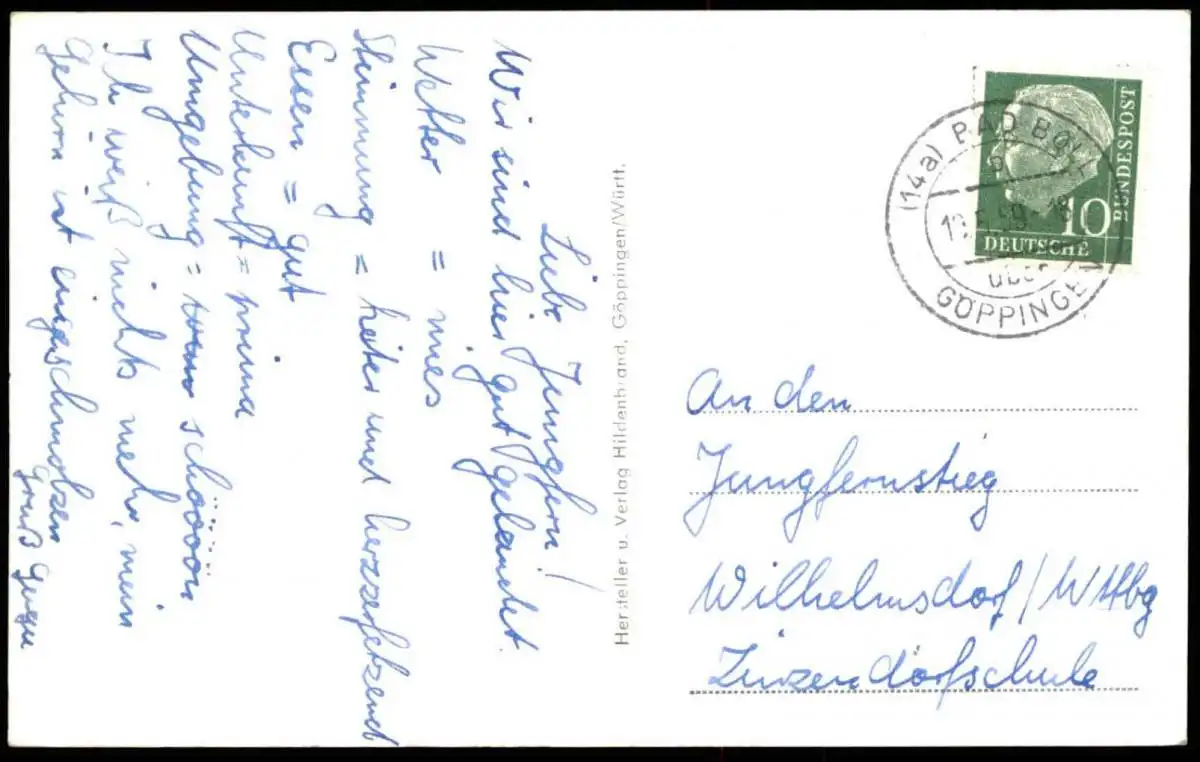 Liebe Jungfern!
Wir sind hier gut gelandet
Wetter = mies
Stimmung = heiter und herzzerfetzend
Essen = gut
Unterkunft = prima
Umgebung = schööön
Ich weiß nichts mehr, mein
Gehirn ist eingeschmolzen
Gruß
Hersteller u. Verlag Hildenbrand, Göppingen/Württ.
BUNDESPOST
10
DEUTSCHE
(14a) BAD BOLL
über
GÖPPINGEN
An den
Jungfernstieg
Wilhelmsdorf/
Zinzendorfschule